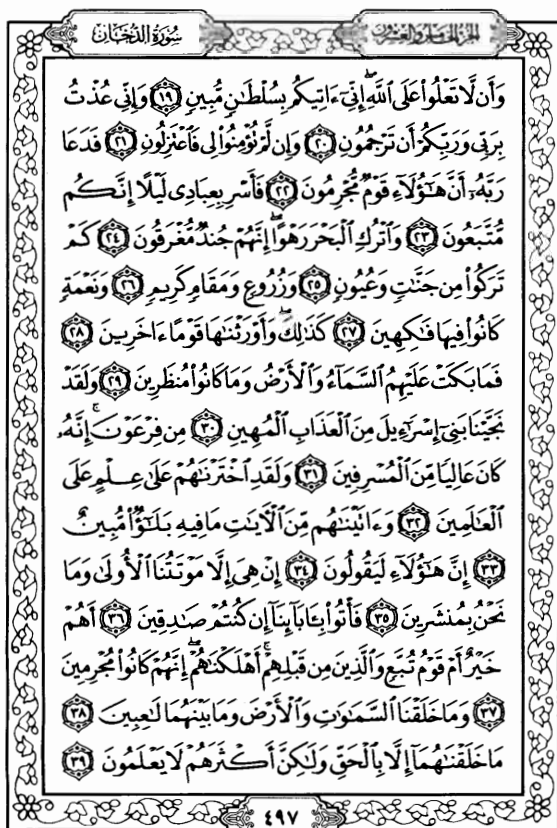 الجزء الخامس والعشرون
سُورَةُ الدُّخَان
وَأَن لَّا تَعْلُوا۟ عَلَى ٱللَّهِ ۖ إِنِّىٓ ءَاتِيكُم بِسُلْطَٰنٍ مُّبِينٍ ١٩ وَإِنِّى عُذْتُ
بِرَبِّى وَرَبِّكُمْ أَن تَرْجُمُونِ ٢٠ وَإِن لَّمْ تُؤْمِنُوا۟ لِى فَٱعْتَزِلُونِ ٢١ فَدَعَا
رَبَّهُۥٓ أَنَّ هَٰٓؤُلَآءِ قَوْمٌ مُّجْرِمُونَ ٢٢ فَأَسْرِ بِعِبَادِى لَيْلًا إِنَّكُم
مُّتَّبَعُونَ ٢٣ وَٱتْرُكِ ٱلْبَحْرَ رَهْوًا ۖ إِنَّهُمْ جُندٌ مُّغْرَقُونَ ٢٤ كَمْ
تَرَكُوا۟ مِن جَنَّٰتٍ وَعُيُونٍ ٢٥ وَزُرُوعٍ وَمَقَامٍ كَرِيمٍ ٢٦ وَنَعْمَةٍ
كَانُوا۟ فِيهَا فَٰكِهِينَ ٢٧ كَذَٰلِكَ ۖ وَأَوْرَثْنَٰهَا قَوْمًا ءَاخَرِينَ ٢٨
فَمَا بَكَتْ عَلَيْهِمُ ٱلسَّمَآءُ وَٱلْأَرْضُ وَمَا كَانُوا۟ مُنظَرِينَ ٢٩ وَلَقَدْ
نَجَّيْنَا بَنِىٓ إِسْرَٰٓءِيلَ مِنَ ٱلْعَذَابِ ٱلْمُهِينِ ٣٠ مِن فِرْعَوْنَ ۚ إِنَّهُۥ
كَانَ عَالِيًا مِّنَ ٱلْمُسْرِفِينَ ٣١ وَلَقَدِ ٱخْتَرْنَٰهُمْ عَلَىٰ عِلْمٍ عَلَى
ٱلْعَٰلَمِينَ ٣٢ وَءَاتَيْنَٰهُم مِّنَ ٱلْءَايَٰتِ مَا فِيهِ بَلَٰٓؤٌا۟ مُّبِينٌ
٣٣ إِنَّ هَٰٓؤُلَآءِ لَيَقُولُونَ ٣٤ إِنْ هِىَ إِلَّا مَوْتَتُنَا ٱلْأُولَىٰ وَمَا
نَحْنُ بِمُنشَرِينَ ٣٥ فَأْتُوا۟ بِـَٔابَآئِنَآ إِن كُنتُمْ صَٰدِقِينَ ٣٦ أَهُمْ
خَيْرٌ أَمْ قَوْمُ تُبَّعٍ وَٱلَّذِينَ مِن قَبْلِهِمْ ۚ أَهْلَكْنَٰهُمْ ۖ إِنَّهُمْ كَانُوا۟ مُجْرِمِينَ
٣٧ وَمَا خَلَقْنَا ٱلسَّمَٰوَٰتِ وَٱلْأَرْضَ وَمَا بَيْنَهُمَا لَٰعِبِينَ ٣٨
مَا خَلَقْنَٰهُمَآ إِلَّا بِٱلْحَقِّ وَلَٰكِنَّ أَكْثَرَهُمْ لَا يَعْلَمُونَ ٣٩
٤٩٧